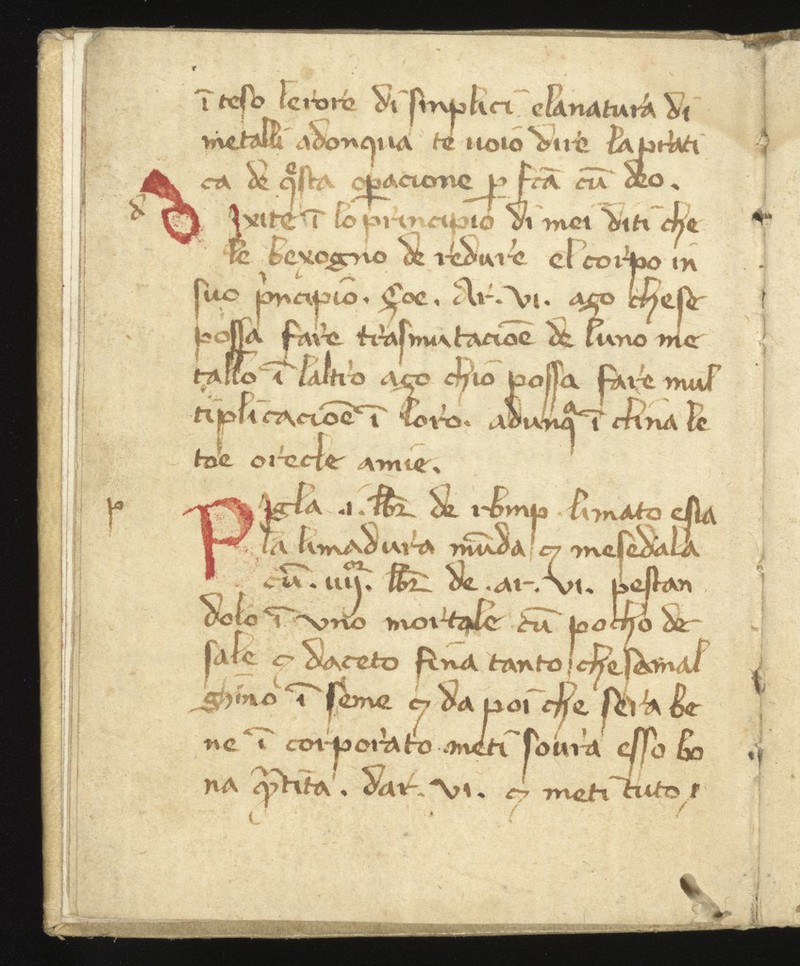 ī teso lerore di sinplici elanatura di
metalli adonqua te voio dire laprati
ca de qͣsta oꝑacione ꝑ fcā cū deo.
d Dixite ī lo principio di mei diti che
le bexogno de redure el corpo in
suo p̃ncipiō. çoe. Ar. vi. aço chese
possa fare trasmutacioē de luno me
tallo ī laltro aço chio possa fare mul
tiplicacioē ī loro. adunqͣ ī clina le
toe orecle amie.
p Pigla .i. lbr̄ de rbmp limato esia
la limadura mūda ⁊ mesedala
cū. iiij. lbr̄ de .ar. vi. pestan
dolo ī vno mortale cū pocho de
sale ⁊ daceto fina tanto chesamal
ghino ī seme ⁊ da poi che sera be
ne ī corporato meti soura esso bo
na q̄ntita. dar. vi. ⁊ meti tuto